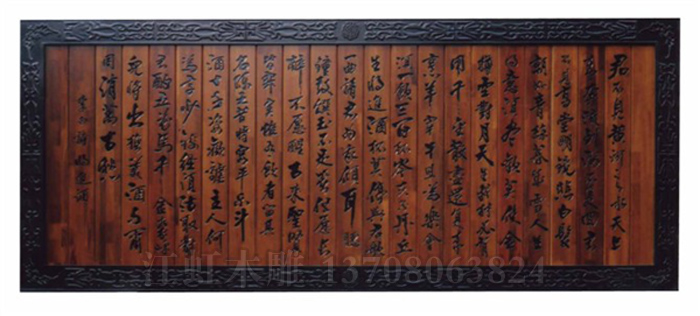 君不見黃河之水天上
來奔流到海不復回君
不見高堂明鏡悲白髮
朝如青絲暮成雪人生
得意須盡歡莫使金
樽空對月天生我材必有
用千金散盡還復來
烹羊宰牛且為樂會
須一飲三百杯岑夫子丹丘
生將進酒杯莫停與君歌
一曲請君為我傾耳聽
鐘鼓饌玉不足貴但願長
醉不願醒古來聖賢
皆寂寞惟有飲者留其
名陳王昔時宴平樂斗
酒十千恣歡謔主人何
為言少錢徑須沽取對
君酌五花馬千金裘呼
兒將出換美酒與爾
同消萬古愁
李白詩將進酒
江虹木雕 13708063824